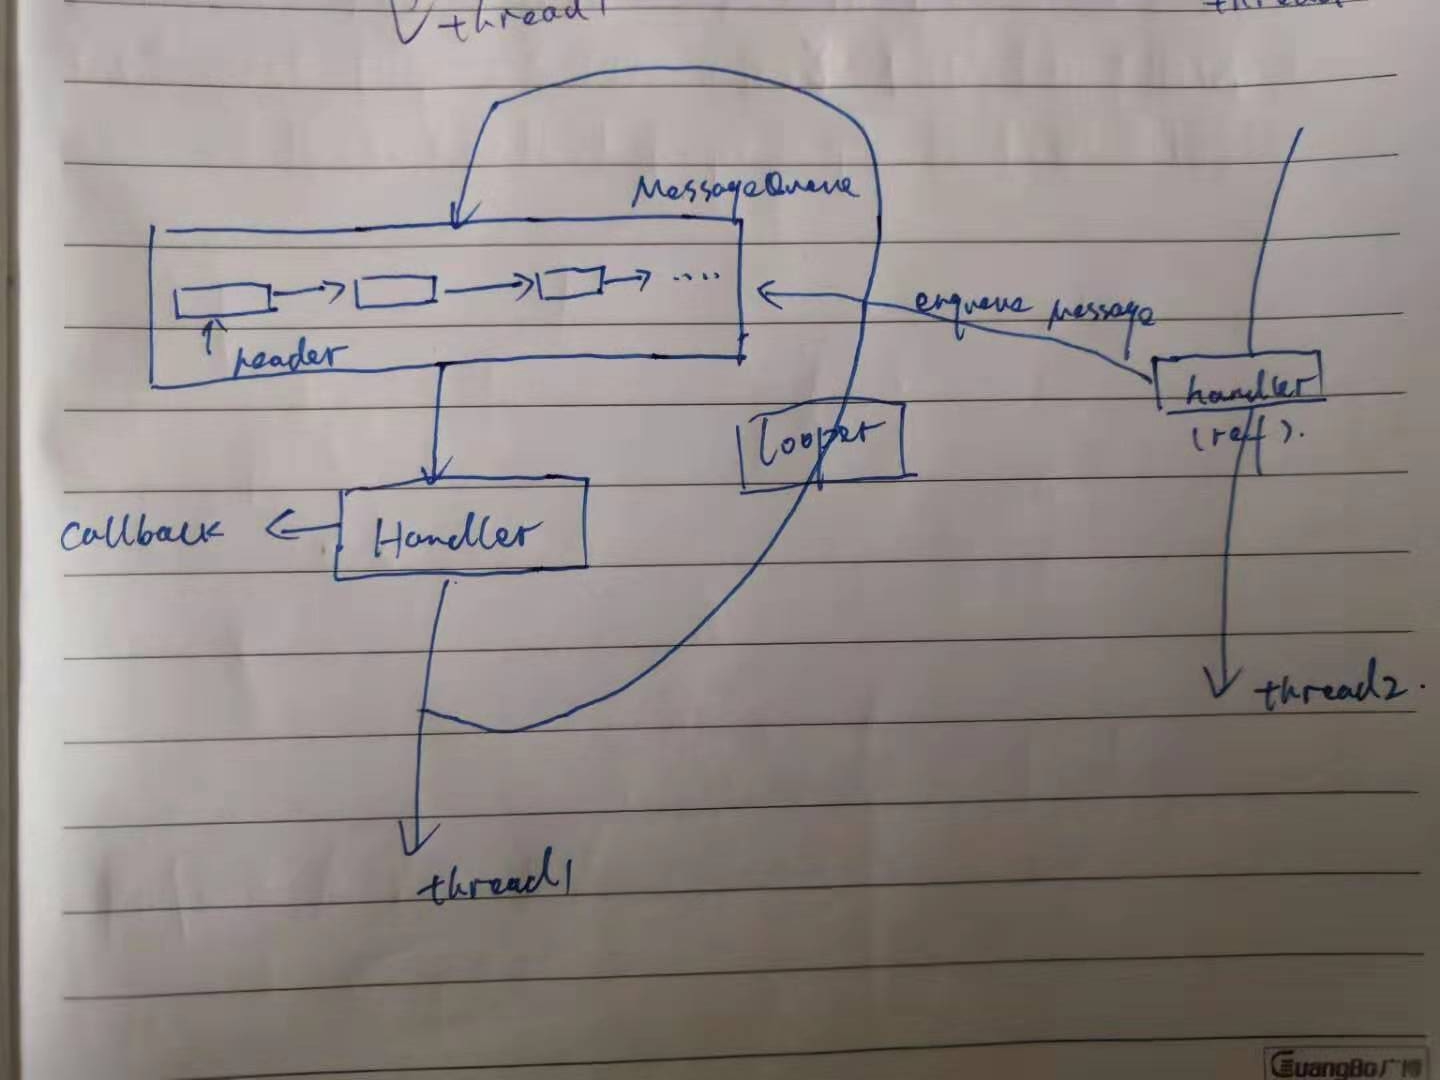 thread1
MessageQueue
header
enqueue message
handler
(ref).
looper
callback
Handler
thread2.
thread1
GuangBo广博